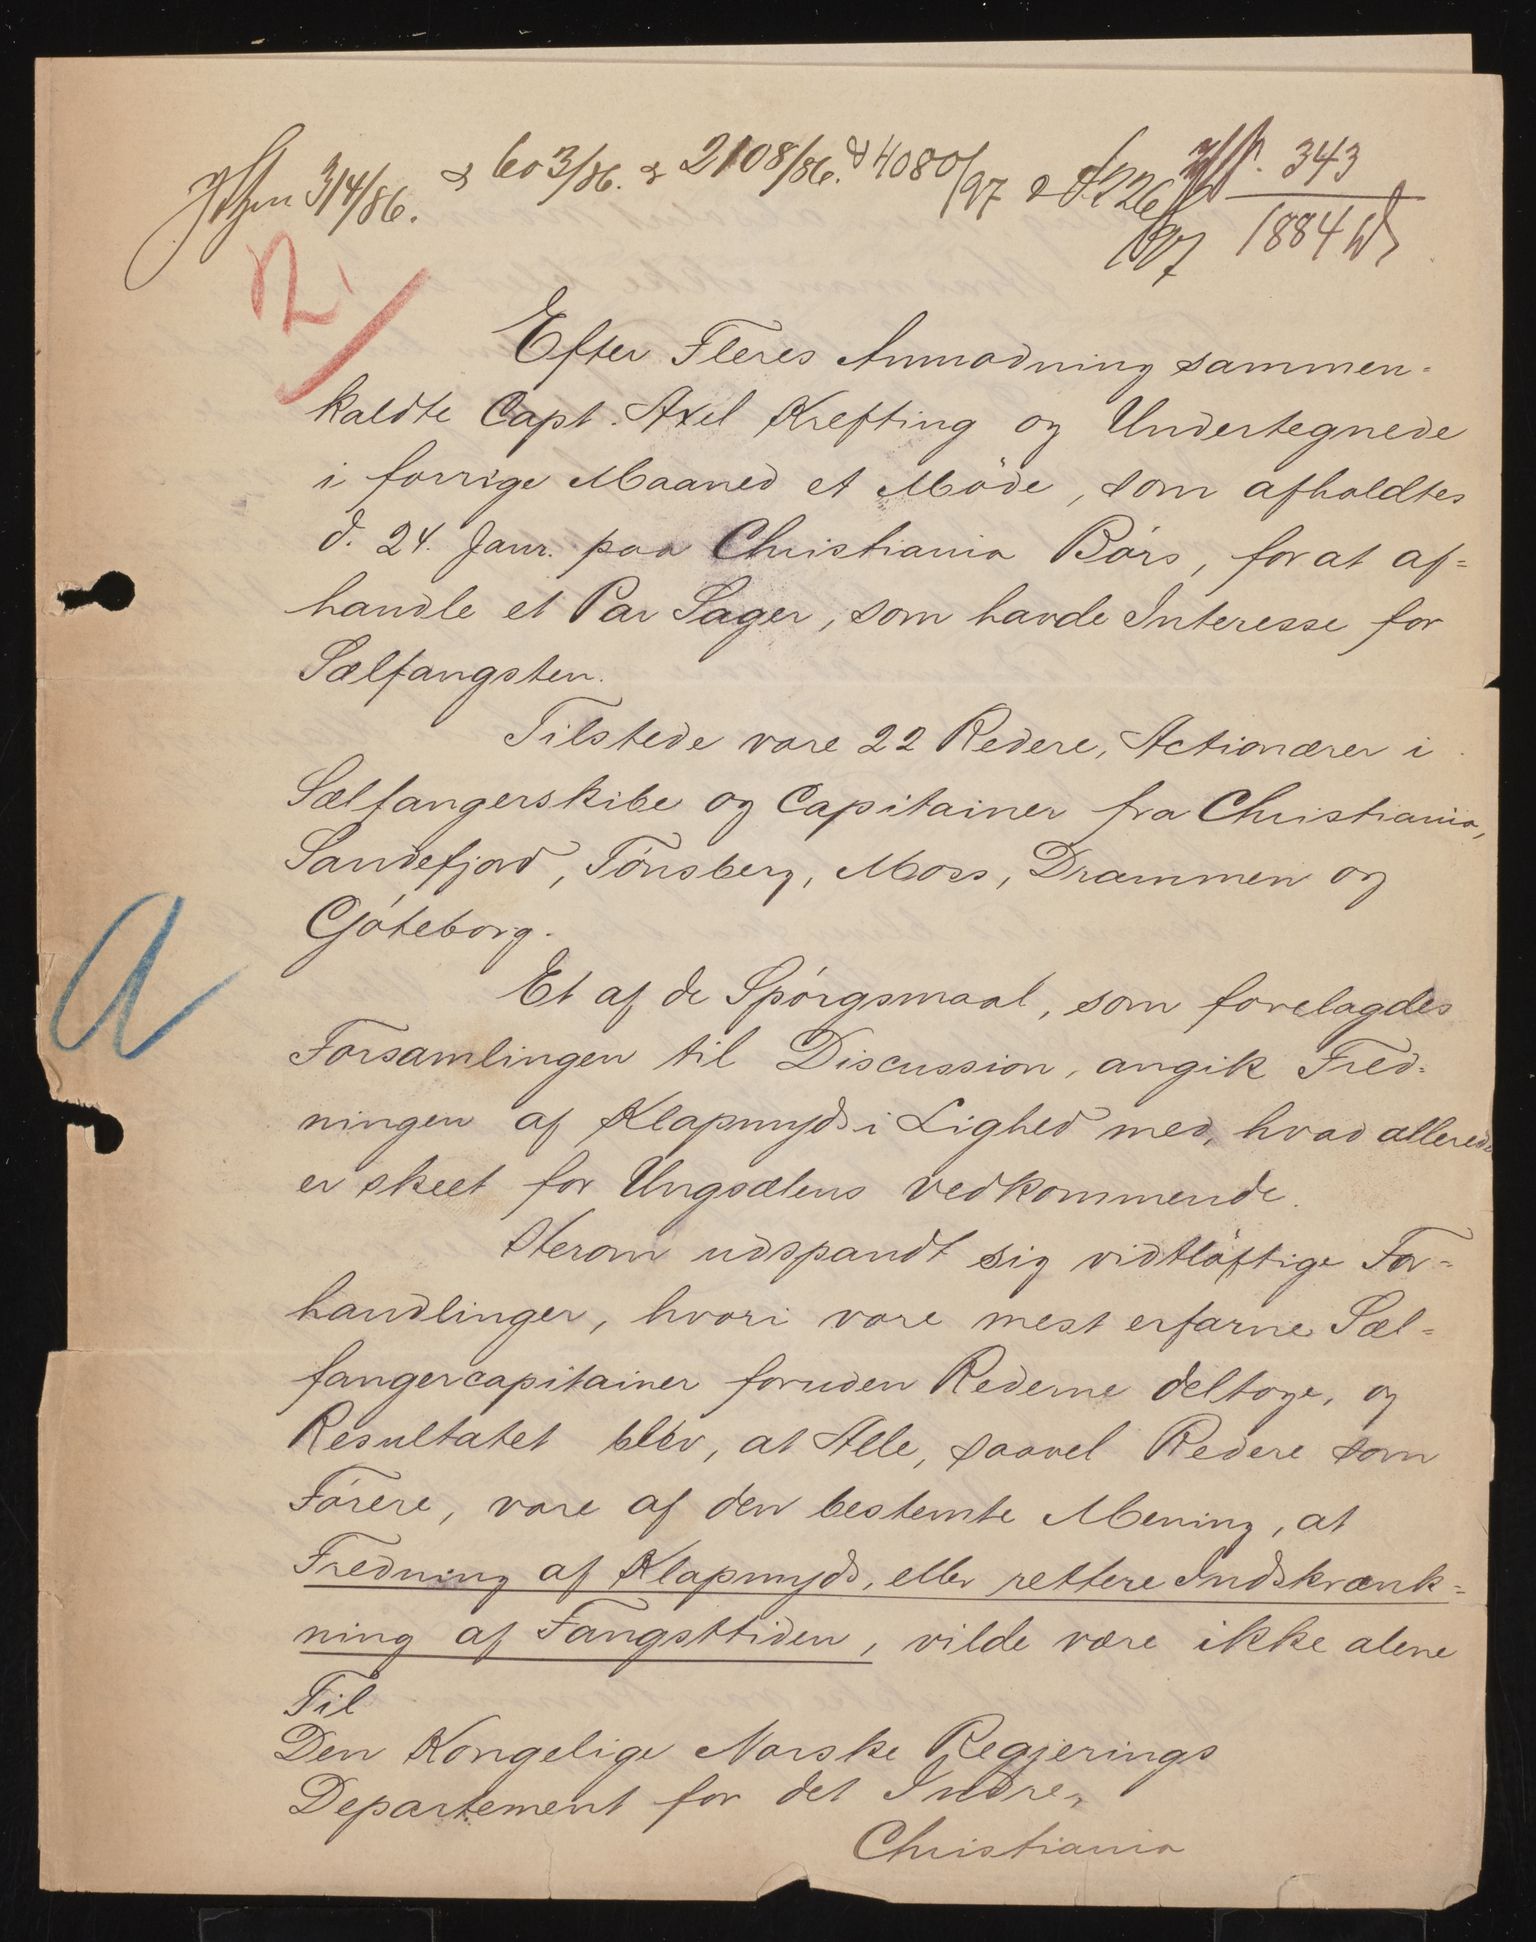 314/86. & 603/86. & 2108/86. & 4080/97 &
343
1884
Efter Fleres Anmodning sammen-
kaldte Capt. Axel Krefting og Undertegnede
i forrige Maaned et Möde, som afholdtes
d. 24. Janr. paa Christiania Börs, for at af-
handle et Par Sager, som havde Interesse for
Sælfangsten.
Tilstede vare 22 Redere, Actionærer i
Sælfangerskibe og Capitainer fra Christiania,
Sandefjord, Tönsberg, Moss, Drammen og
Göteborg.
Et af de Spörgsmaal, som forelagdes
Forsamlingen til Discussion, angik Fred-
ningen af Klapmyds i Lighed med, hvad allerede
er skeet for Ungsælens Vedkommende.
Herom udspandt sig vidtlöftige For-
handlinger, hvori vore mest erfarne Sæl-
fangercapitainer foruden Rederne deltoge, og
Resultatet blev, at Alle, saavel Redere som
Förere, vare af den bestemte Mening, at
Fredning af Klapmyds, eller rettere Indskrænk-
ning af Fangsttiden, vilde være ikke alene
Til
Den Kongelige Norske Regjerings
Departement for det Indre,
Christiania
A